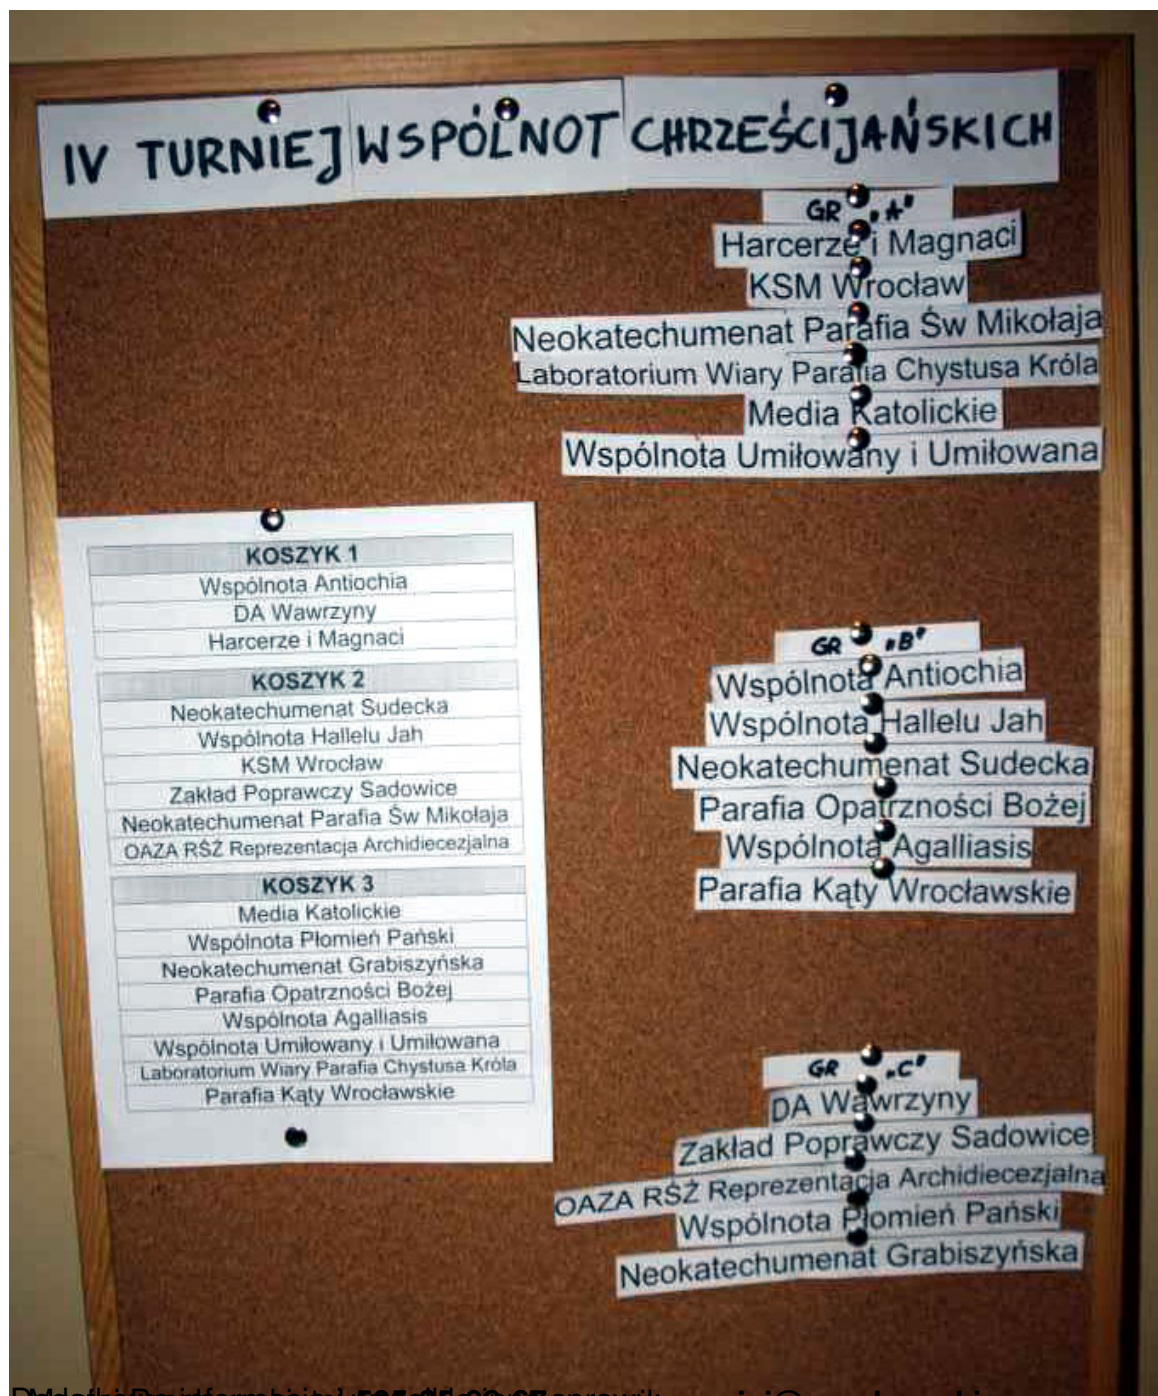 IV TURNIEJ WSPÓLNOT CHRZEŚCIJAŃSKICH
GR „A"
Harcerze i Magnaci
KSM Wrocław
Neokatechumenat Parafia Św Mikołaja
Laboratorium Wiary Parafia Chystusa Króla
Media Katolickie
Wspólnota Umiłowany i Umiłowana
KOSZYK 1
Wspólnota Antiochia
DA Wawrzyny
Harcerze i Magnaci
KOSZYK 2
Neokatechumenat Sudecka
Wspólnota Hallelu Jah
KSM Wrocław
Zakład Poprawczy Sadowice
Neokatechumenat Parafia Św Mikołaja
OAZA RŚŻ Reprezentacja Archidiecezjalna
KOSZYK 3
Media Katolickie
Wspólnota Płomień Pański
Neokatechumenat Grabiszyńska
Parafia Opatrzności Bożej
Wspólnota Agalliasis
Wspólnota Umiłowany i Umiłowana
Laboratorium Wiary Parafia Chystusa Króla
Parafia Kąty Wrocławskie
GR „B"
Wspólnota Antiochia
Wspólnota Hallelu Jah
Neokatechumenat Sudecka
Parafia Opatrzności Bożej
Wspólnota Agalliasis
Parafia Kąty Wrocławskie
GR „C"
DA Wawrzyny
Zakład Poprawczy Sadowice
OAZA RŚŻ Reprezentacja Archidiecezjalna
Wspólnota Płomień Pański
Neokatechumenat Grabiszyńska